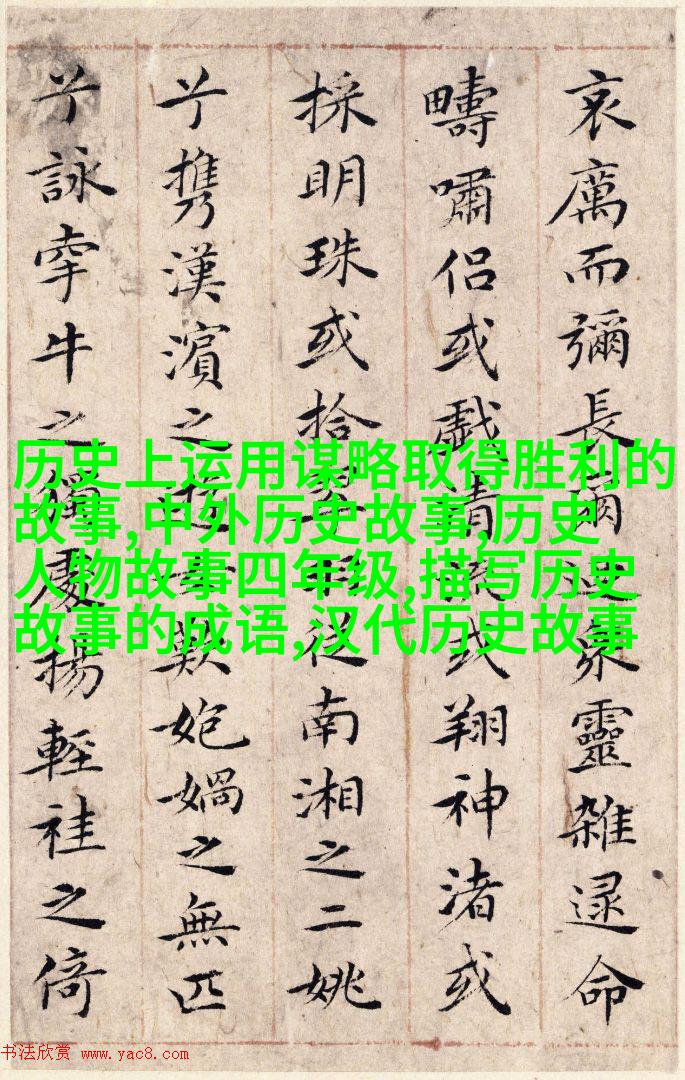 哀厲而彌長爾眾靈雜遝命
疇嘯侶或戲清流或翔神渚或
採明珠或拾從南湘之二姚
兮携漢濱之遊女歎媧之無匹
兮詠牽牛之獨處揚輕袿之倚
历史上运用谋略取得胜利的
故事,中外历史故事,历史
人物故事四年级,描写历史
故事的成语,汉代历史故事
书法欣赏 www.yac8.com